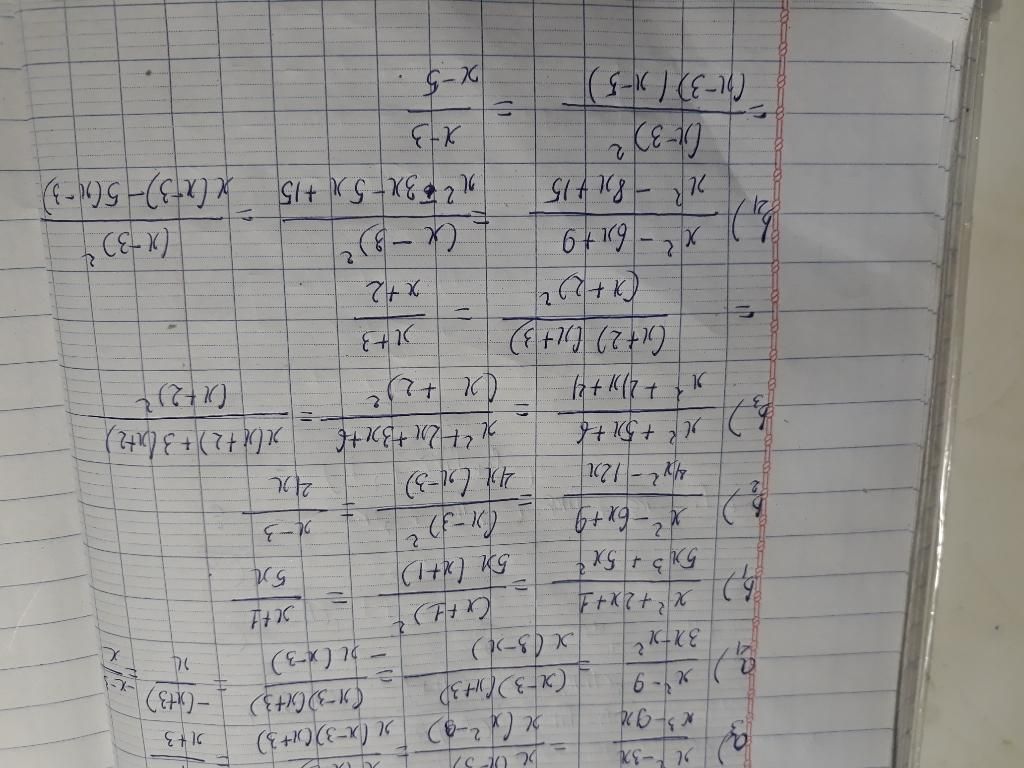 a3) x²-3x / x³-9x = x(x-3) / x(x²-9) = / x(x-3)(x+3) = / x+3
a4) x²-9 / 3x-x² = (x-3)(x+3) / x(3-x) = (x-3)(x+3) / -x(x-3) = -(x+3) / x = -x-3 / x
b1) x²+2x+1 / 5x³+5x² = (x+1)² / 5x(x+1) = x+1 / 5x
b2) x²-6x+9 / 4x²-12x = (x-3)² / 4x(x-3) = x-3 / 4x
b3) x²+5x+6 / x²+4x+4 = x²+2x+3x+6 / (x+2)² = x(x+2)+3(x+2) / (x+2)²
= (x+2)(x+3) / (x+2)² = x+3 / x+2
b4) x²-6x+9 / x²-8x+15 = (x-3)² / x²-3x-5x+15 = (x-3)² / x(x-3)-5(x-3)
= (x-3)² / (x-3)(x-5) = x-3 / x-5